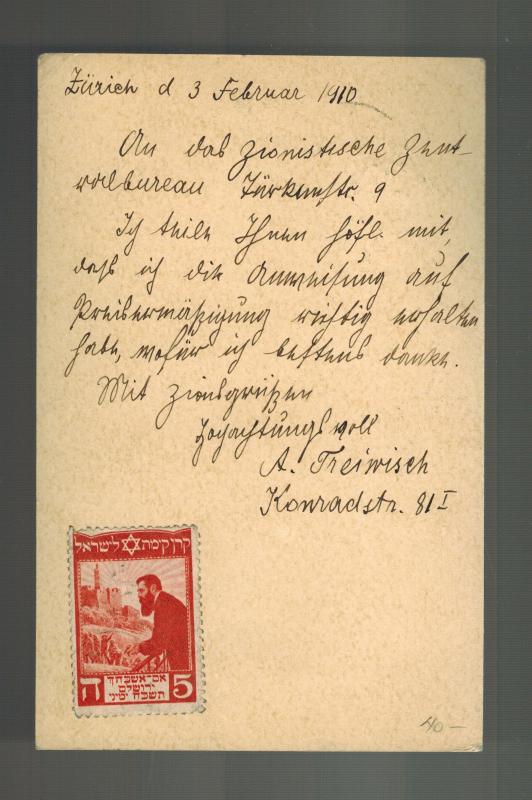 Zürich d 3 Februar 1910
An das zionistische Zent-
ralbureau Türkenstr. 9
Ich theile Ihnen höfl. mit,
daß ich die Anweisung auf
Preisermäßigung richtig erhalten
habe, wofür ich bestens danke.
Mit Zionsgrüßen
Hochachtungsvoll
A. Treiwisch
Konradstr. 81 I
קרן קימת לישראל
אם-אשכחך
ירושלם
תשכח ימיני
ה 5
40 —